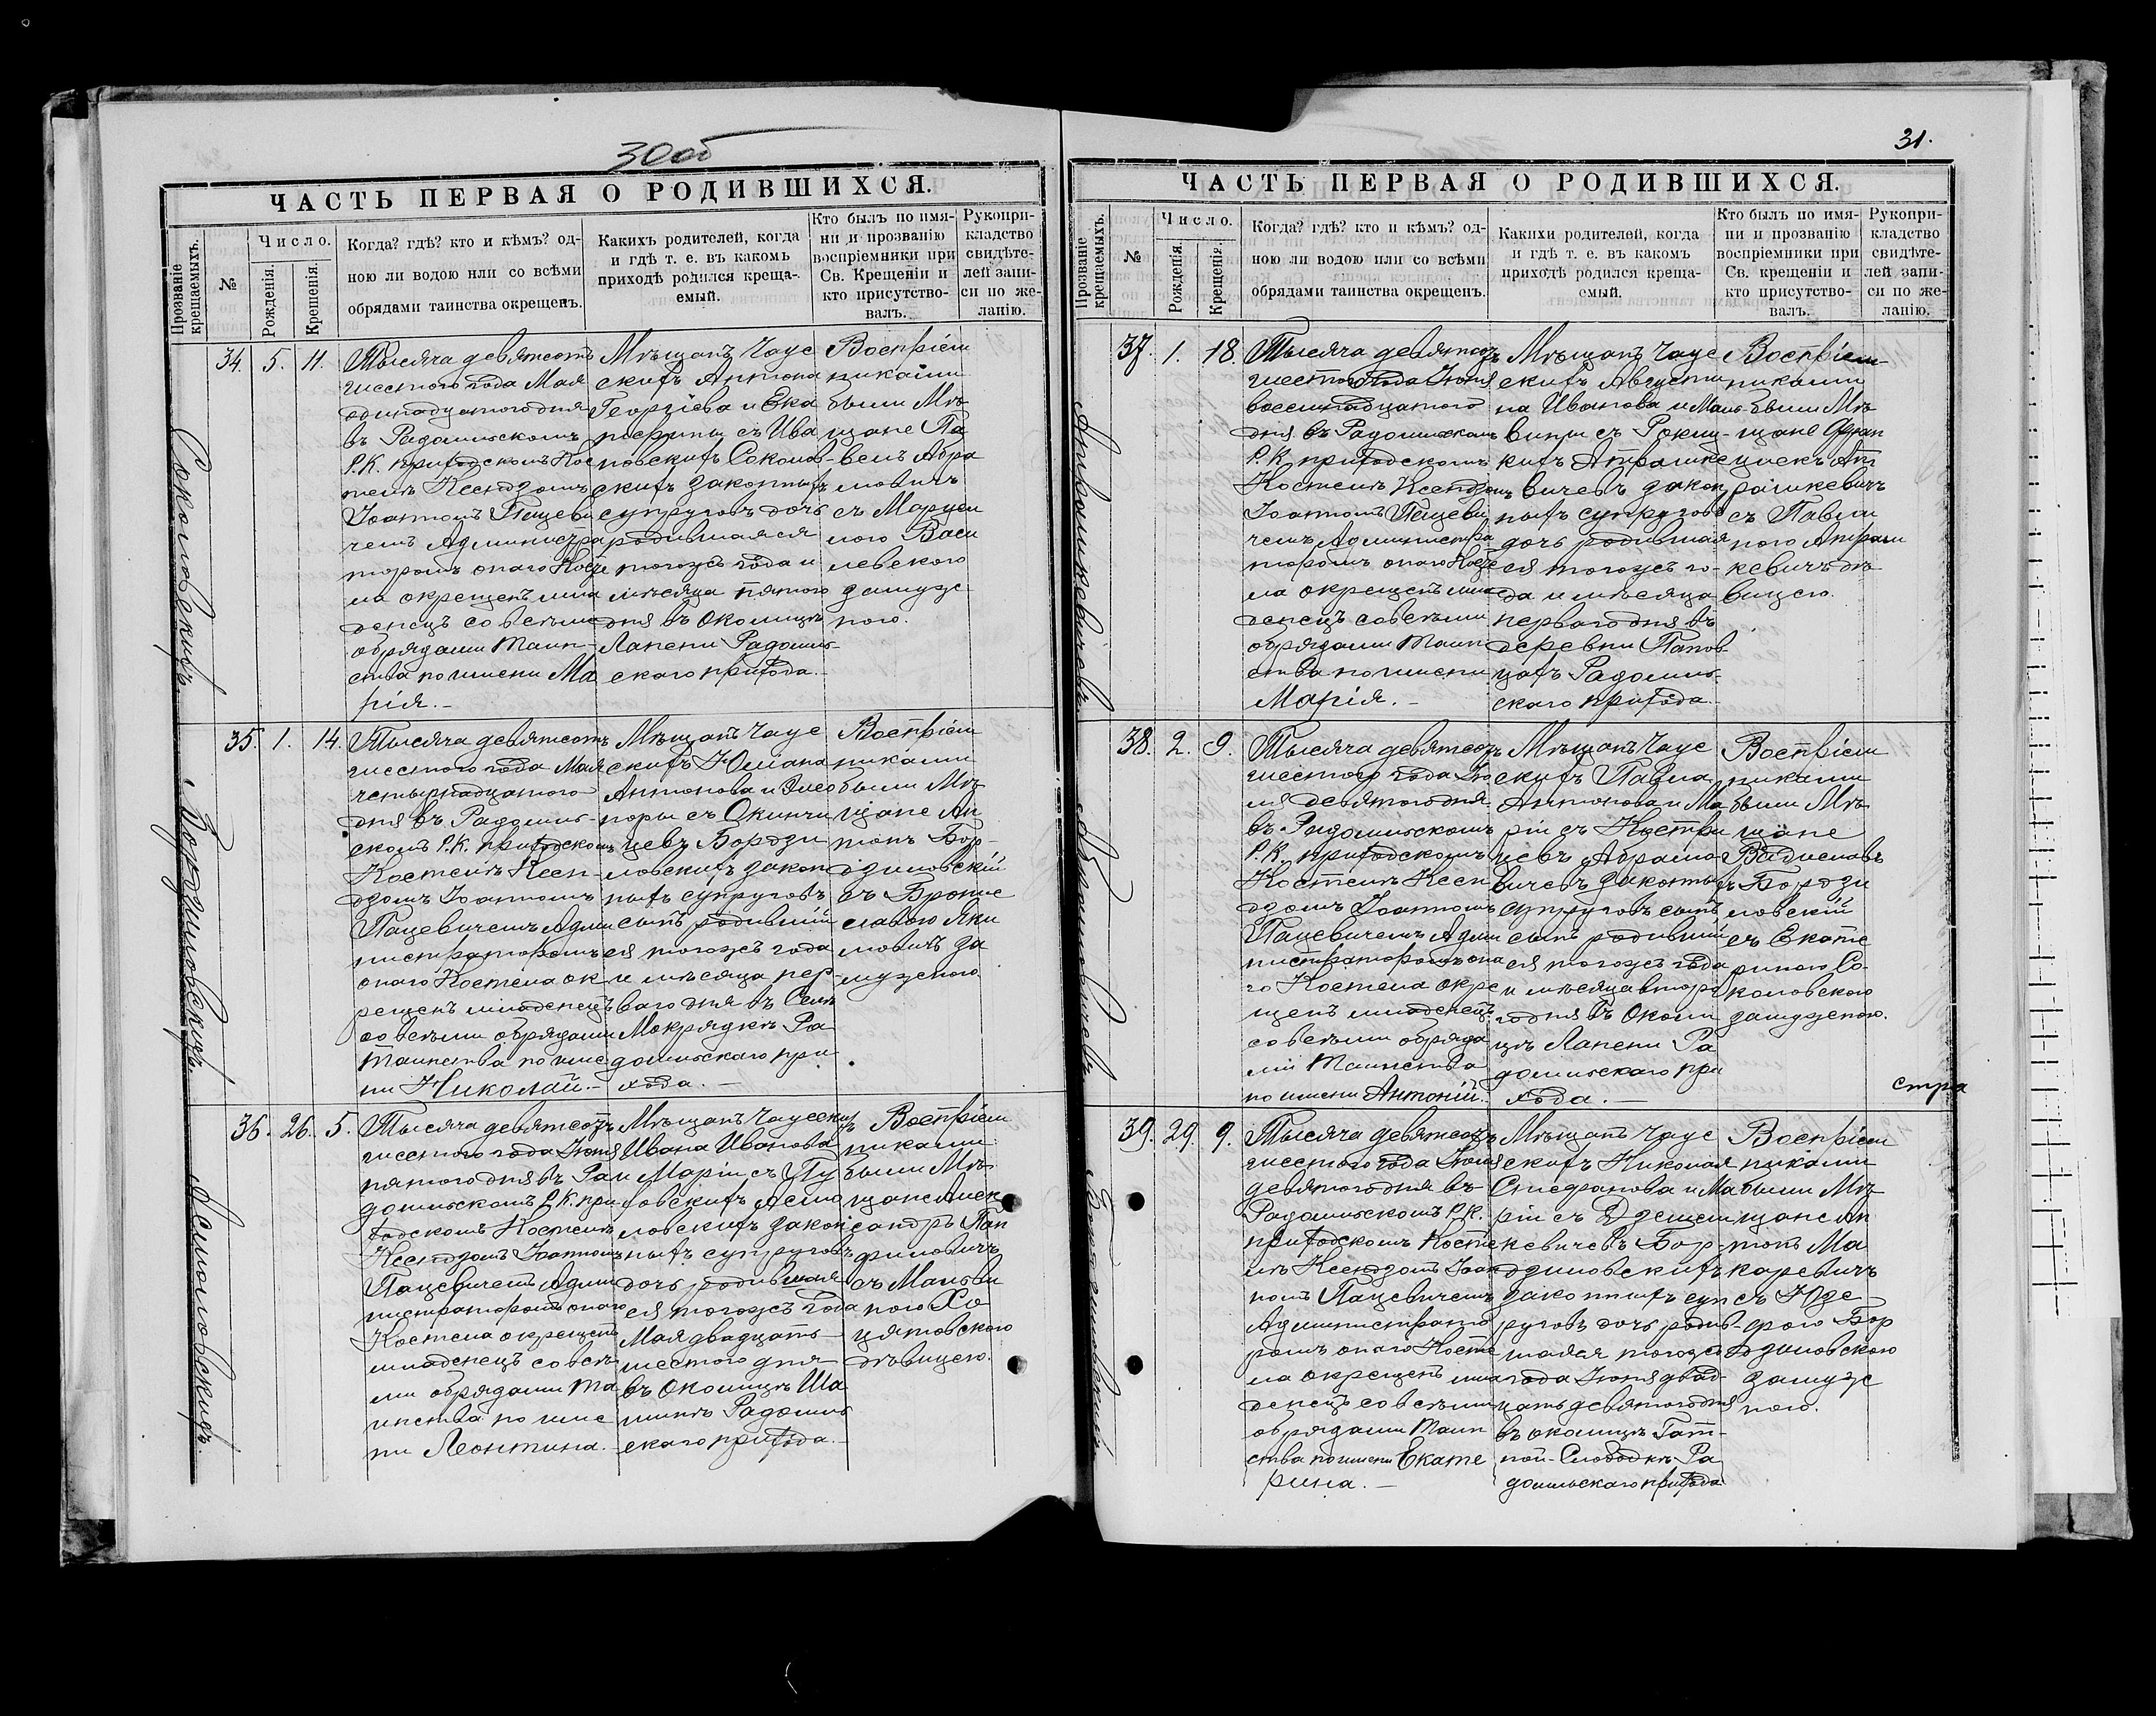 30об
ЧАСТЬ ПЕРВАЯ О РОДИВШИХСЯ.
Прозваніе крещаемыхъ.
№
Число.
Рожденія.
Крещенія.
Когда? гдѣ? кто и кѣмъ? од-
ною ли водою или со всѣми
обрядами таинства окрещенъ.
Какихъ родителей, когда
и гдѣ т. е. въ какомъ
приходѣ родился креща-
емый.
Кто былъ по имя-
ни и прозванію
воспріемники при
Св. Крещеніи и
кто присутство-
валъ.
Рукопри-
кладство
свидѣте-
лей запи-
си по же-
ланію.
Соколовскихъ.
34. 5. 11.
Тысяча девятсотъ
шестого года Мая
одинадцатого дня
въ Радомльскомъ
Р.К. приходскомъ Кос
телѣ Ксендзомъ
Іоанномъ Пацеви
чемъ Администра
торомъ онаго Косте
ла окрещенъ мла
денецъ со всѣми
обрядами Таин-
ства по имени Ма
рія.-
Мѣщанъ Чаус
скихъ Антона
Георгіева и Ека
терины съ Ива
новскихъ Соколов-
скихъ законныхъ
супруговъ дочь
родившаяся
тогожъ года и
мѣсяца пятого
дня въ околицѣ
Лапени Радомль
скаго прихода.-
Воспріем
никами
были Мѣ
щане Па
велъ Абра
мовичъ
съ Марцел
лою Васи
левского
замуж
ного.
Бордзиловскихъ.
35. 1. 14.
Тысяча девятсотъ
шестого года Мая
четырнадцатого
дня въ Радомль-
скомъ Р.К. приходскомъ
Костелѣ Ксен-
дзомъ Іоанномъ
Пацевичемъ Адми
нистраторомъ
онаго Костела ок
рещенъ младенецъ
со всѣми обрядами
Таинства по име
ни Николай.-
Мѣщанъ Чаус
скихъ Юліана
Антонова и Элео
норы съ Окинчи
цевъ Бордзи-
ловскихъ закон
ныхъ супруговъ
сынъ родившій
ся тогожъ года
и мѣсяца пер-
ваго дня въ Селѣ
Мокрядкѣ Ра
домльскаго при
хода.-
Воспріем
никами
были Мѣ
щане Ан
тонъ Бор-
дзиловскій
съ Бронис
лавою Яки
мовичъ за
мужного.
Асмоловскихъ.
36. 26. 5.
Тысяча девятсотъ
шестого года Іюня
пятого дня въ Ра
домльскомъ Р.К. при
ходскомъ Костелѣ
Ксендзомъ Іоанномъ
Пацевичемъ Адми
нистраторомъ онаго
Костела окрещенъ
младенецъ со всѣ
ми обрядами Та
инства по име
ни Леонтина.
Мѣщанъ Чаусскихъ
Ивана Иванова
и Маріи съ Пу
ловскихъ Асмо
ловскихъ закон
ныхъ супруговъ
дочь родившая
ся тогожъ года
Мая двадцать
шестого дня
въ околицѣ Ша
минѣ Радомль
скаго прихода.-
Воспріем
никами
были Мѣ
щане Алек
сандръ Пан
филовичъ
съ Мальви
ною Хо
цятовского
дѣвицею.
31.
ЧАСТЬ ПЕРВАЯ О РОДИВШИХСЯ.
Прозваніе крещаемыхъ.
№
Число.
Рожденія.
Крещенія.
Когда? гдѣ? кто и кѣмъ? од-
ною ли водою или со всѣми
обрядами таинства окрещенъ.
Какихи родителей, когда
и гдѣ т. е. въ какомъ
приходѣ родился креща-
емый.
Кто былъ по имя-
ни и прозванію
воспріемники при
Св. крещеніи и
кто присутство-
валъ.
Рукопри-
кладство
свидѣте-
лей запи-
си по же-
ланію.
Апрашкевичевъ.
37. 1. 18.
Тысяча девятсотъ
шестого года Іюня
восемнадцатого
дня въ Радомльскомъ
Р.К. приходскомъ
Костелѣ Ксендзомъ
Іоанномъ Пацеви
чемъ Администра
торомъ онаго Косте
ла окрещенъ мла
денецъ со всѣми
обрядами Таин
ства по имени
Марія.-
Мѣщанъ Чаус
скихъ Августи
на Иванова и Маль
вины съ Рокиц-
кихъ Апрашке
вичевъ закон
ныхъ супруговъ
дочь родившая
ся тогожъ го-
да и мѣсяца
перваго дня въ
деревни Папов
цахъ Радомль-
скаго прихода.
Воспріем-
никами
были Мѣ
щане Фран
цискъ Ап
рашкевичъ
съ Павли
ного Апраш
кевичъ дѣ
вицею.
Абрамовичевъ.
38. 2. 9.
Тысяча девятсотъ
шестого года Ію
ля девятого дня
въ Радомльскомъ
Р.К. приходскомъ
Костелѣ Ксен
дзомъ Іоанномъ
Пацевичемъ Адми
нистраторомъ она
го Костела окре
щенъ младенецъ
со всѣми обряда
ми Таинства
по имени Антоній.
Мѣщанъ Чаус
скихъ Павла
Антонова и Ма
ріи съ Кастри
цевъ Абрамо
вичевъ законныхъ
супруговъ сынъ
сынъ родившій
ся тогожъ года
и мѣсяца второ
го дня въ Околи
цѣ Лапени Ра
домльскаго при
хода.-
Воспріем
никами
были Мѣ
щане
Владиславъ
Бордзи
ловскій
съ Екате
риного Со-
коловского
замужного.
стра
Бордзиловскихъ
39. 29. 9.
Тысяча девятсотъ
шестого года Іюля
девятого дня въ
Радомльскомъ Р.К.
приходскомъ Косте
лѣ Ксендзомъ Іоан
номъ Пацевичемъ
Администрато
ромъ онаго Косте
ла окрещенъ мла
денецъ со всѣми
обрядами Таин
ства по имени Екате
рина.-
Мѣщанъ Чаус
скихъ Николая
Стефанова и Ма
ріи съ
кевичевъ Бор-
дзиловскихъ
законныхъ суп
руговъ дочь родив-
шаяся тогожъ
года Іюня двад-
цать девятого дня
въ околицѣ Гат-
ной-Слободкѣ Ра
домльскаго прихода
Воспріем
никами
были Мѣ
щане Ан
тонъ Ма
каревичъ
съ Юзе
фого Бор
дзиловского
замуж
ного.